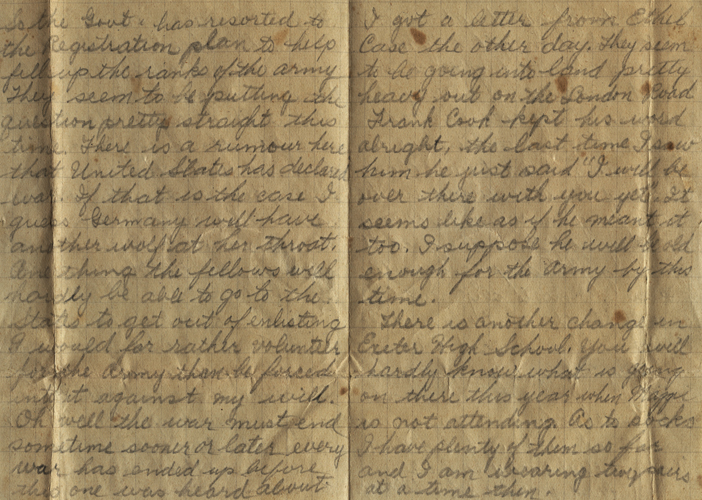 Is the Govt. has resorted to
the Registration plan to help
fill up the ranks of the army
They seem to be putting the
question pretty straight this
time. There is a rumour here
that United States has declared
war. If that is the case I
guess Germany will have
another wolf at her throat.
One thing the fellows will
hardly be able to go to the
States to get out of enlisting
I would far rather volunteer
for the Army than be forced
into it against my will.
Oh well the war must end
sometime sooner or later every
war has ended up before
this one was heard about
I got a letter from Ethel
Case the other day. They seem
to be going into land pretty
heavy out on the London Road
Frank Cook kept his word
alright, the last time I saw
him he just said "I will be
over there with you yet". It
seems like as if he meant it
too. I suppose he will be old
enough for the Army by this
time.
There is another change in
Exeter High School. You will
hardly know what is going
on there this year when
is not attending. As to socks
I have plenty of them so far
and I am wearing two pairs
at a time then.